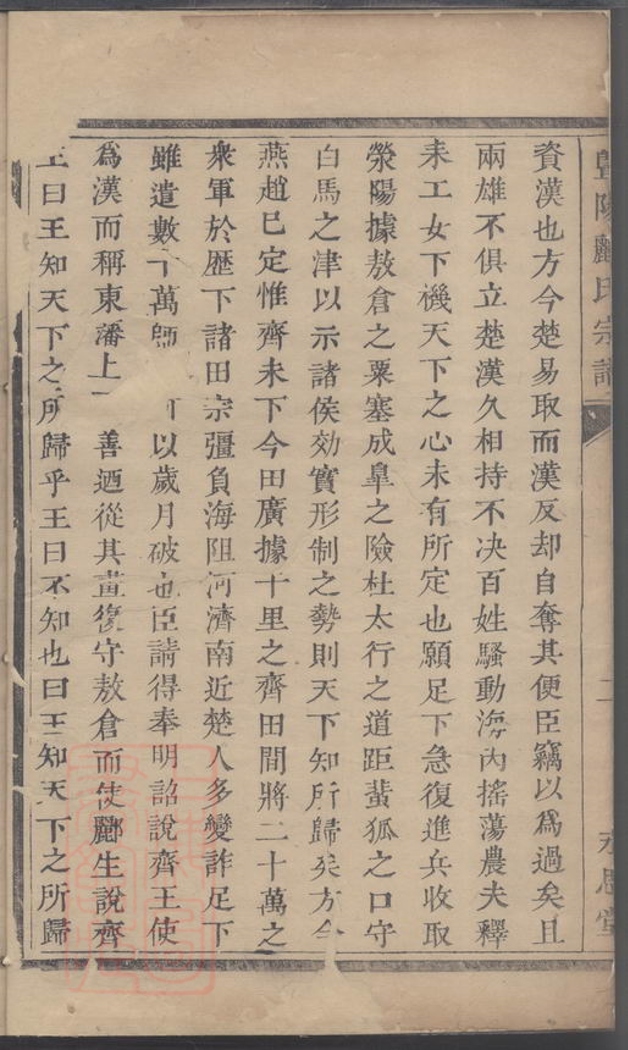 陽酈氏宗譜 二
資漢也方今楚易取而漢反却自奪其便臣竊以爲過矣且
兩雄不俱立楚漢久相持不決百姓騷動海內搖蕩農夫釋
耒工女下機天下之心未有所定也願足下急復進兵收取
滎陽據敖倉之粟塞成皐之險杜太行之道距蜚狐之口守
白馬之津以示諸侯効實形制之勢則天下知所歸矣方今
燕趙已定惟齊未下今田廣據千里之齊田間將二十萬之
衆軍於歷下諸田宗彊負海阻河濟南近楚人多變詐足下
雖遣數十萬師 可以歲月破也臣請得奉明詔說齊王使
爲漢而稱東藩上 善迺從其畫復守敖倉而使酈生說齊
王曰王知天下之所歸乎王曰不知也曰王知天下之所歸